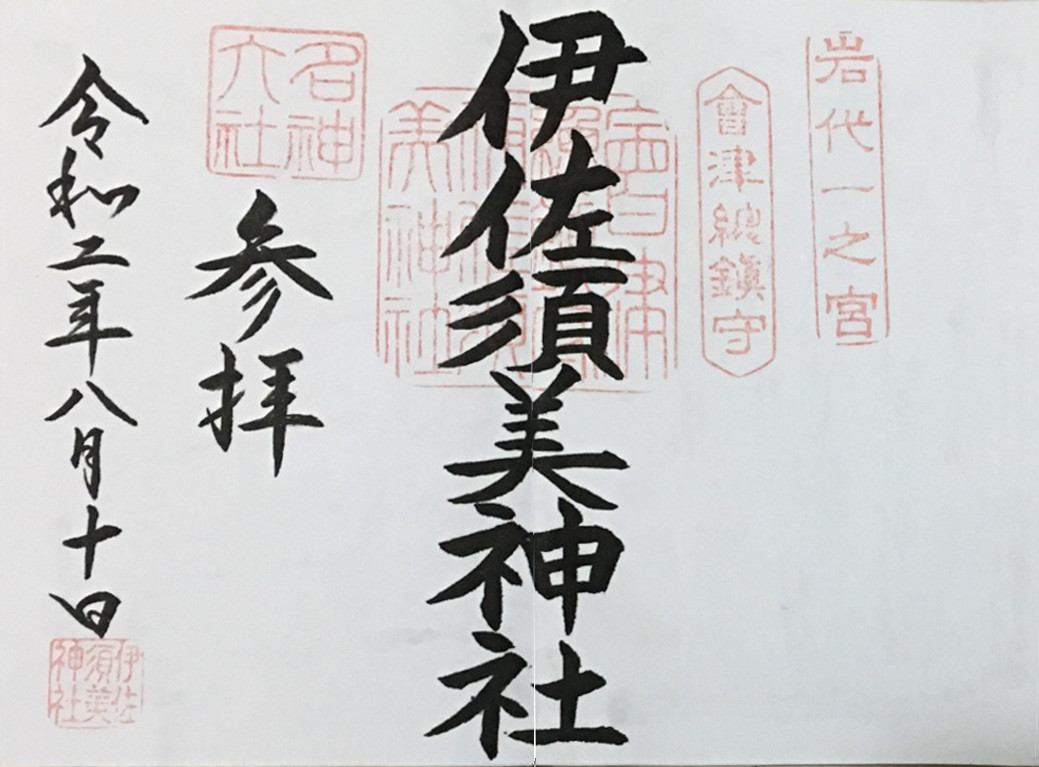 岩代一之宮
會津總鎮守
伊佐須美神社
名神
大社
参拝
令和二年八月十日
伊佐
須美
神社